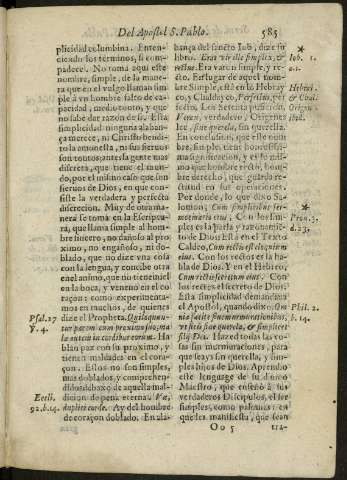 Del Apostol S. Pablo. 585
plicidad columbina. Enten-
ciendo los terminos, se com-
padece. No toma aqui este
nombre, simple, de la mane-
ra que en el vulgo llaman sim
ple à vn hombre falto de ca-
pacidad, modo tonto, y que
no sabe dar razon de si. Esta
simplicidad ninguna alaban-
ça merece, ni Christo bendi-
to la amonesta, ni sus sieruos
son tontos; antes la gente mas
discreta, que tiene el mun-
do, por el mismo caso que son
sieruos de Dios, en que con-
siste la verdadera y perfecta
discrecion. Muy de otra ma-
nera se toma en la Escriptu-
ra, que llama simple al hom-
bre sincero, no dañoso al pro
ximo, no engañoso, ni do-
blado, que no dize vna cosa
con la lengua, y concibe otra
en el animo, que no tiene miel
en la boca, y veneno en el co
raçon: como experimenta-
mos en muchos, de quienes
Psal. 27 dize el Propheta. Qui loquun-
v. 4. tur pacem cum proximo suo, ma
la autem in cordibus eorum. Ha
blan paz con su proximo, y
tienen maldades en el cora-
çon. Estos no son simples,
mas doblados, y comprehen-
didos debaxo de aquella mal-
dicion de pena eterna. Væ,
Eccli.
92. b. 14. duplici corde. Ay del hombre
de coraçon doblado. En ala-
bança del sancto Iob, dize su
libro. Erat vir ille simplex, & Iob. 1.
rectus. Era varon simple, y re- a. 1.
cto. En lugar de aquel nom-
bre Simple, està en la Hebray Hebræi
co, y Chaldayco, Perfectus, per & Chal.
fecto. La Setenta pusieron, Origen
Verax, verdadero; Origenes ibid.
lee, Sine querela, sin querella.
En conclusion, que este nom
bre, simple, tiene honrosissi-
ma significacion, y es lo mis-
mo que hombre recto, hom-
bre entero, que guarda re-
ctitud en sus operaciones.
Por donde, lo que dixo Sa-
lomon; Cum simplicibus ser-
mocinatio eius, Con los sim- Prou. 3.
ples es la parla y razonamie- d. 23.
to de Dios: Està en el Texto
Caldeo, Cum rectis est eloquium
eius. Con los rectos es la ha-
bla de Dios. Y en el Hebreo,
Cum rectis secretum eius. Con
los rectos el secreto de Dios.
Esta simplicidad demanda
el Apostol, quando dixo, Om Phil. 2.
nia facite sine murmurationibus, b. 14.
vt sitis sine querela, & simplices
filij Dei. Hazed todas las co-
sas sin murmuraciones, para
que seays sin querella, y sim-
ples hijos de Dios. Aprendio
este lenguage de su diuino
Maestro, que enseñò à sus
verdaderos Discipulos, el ser
simples, como palomas: en
que les manifiesta, que sean
Oo 5 tra-